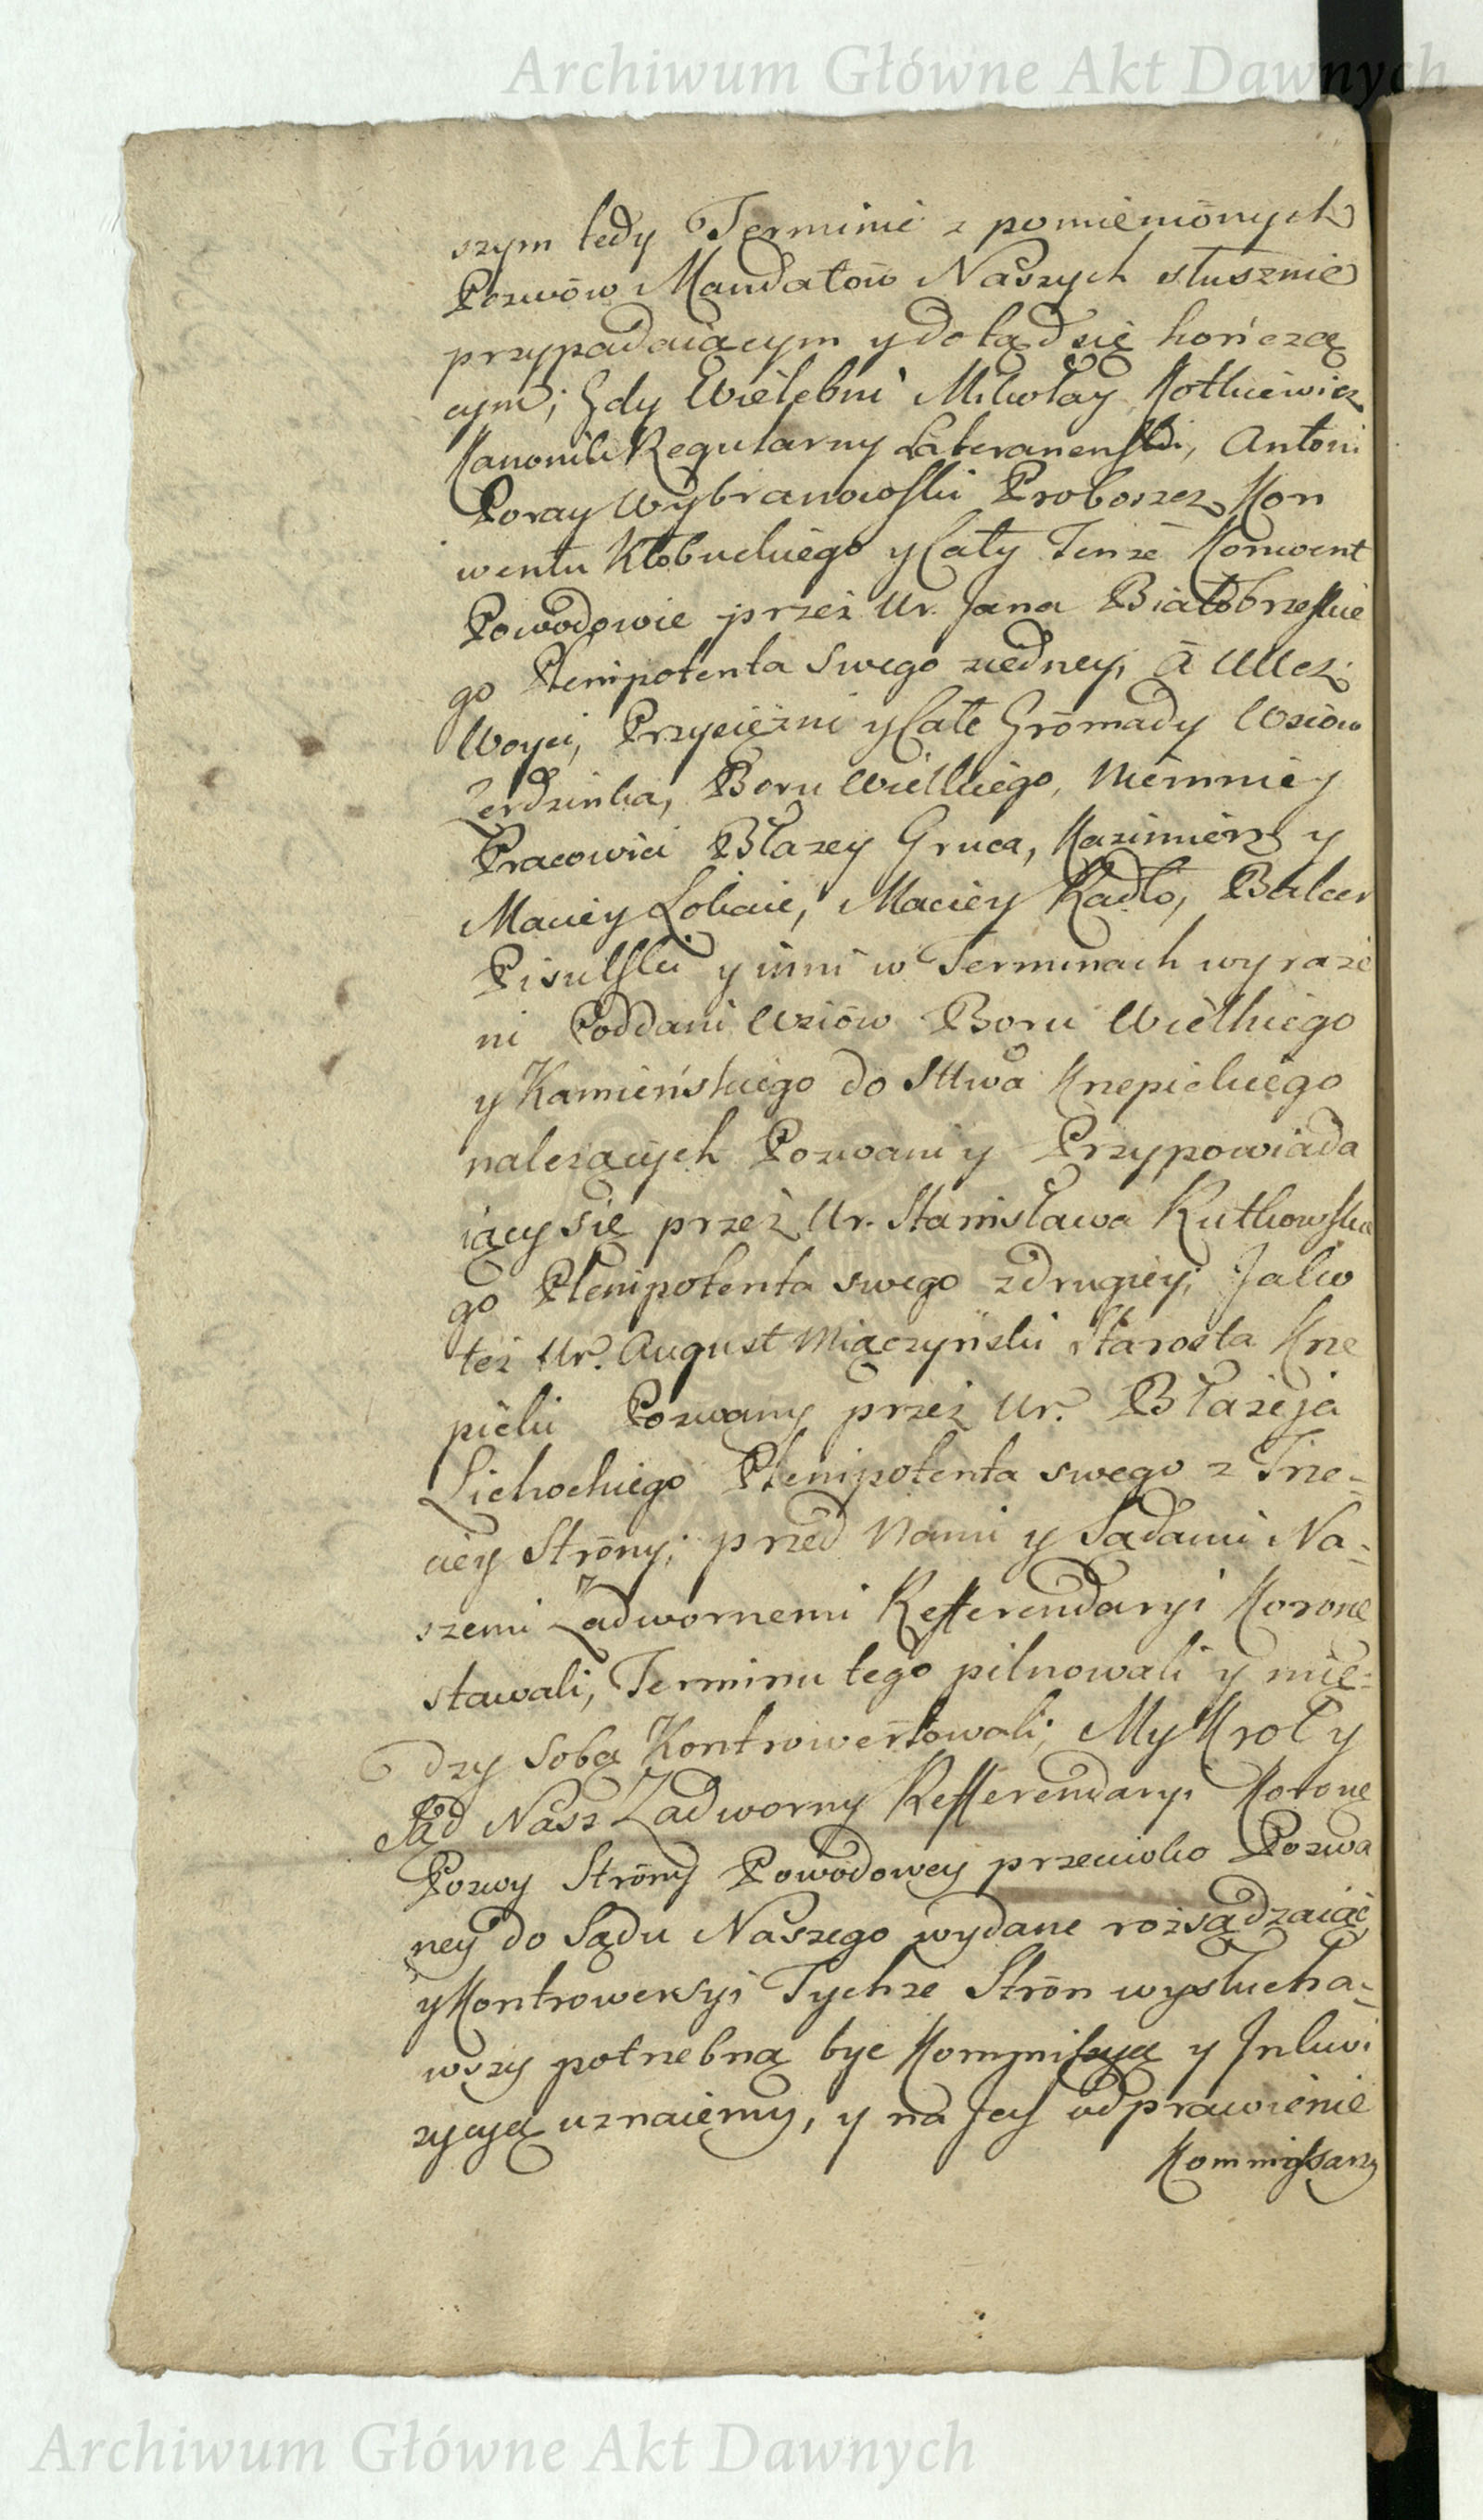 Archiwum Główne Akt Dawnych
szym tedy Terminie z pomienionych
Pozwów Mandatów Naszych słusznie
przypadaiącym y dotąd się kończą
cym; Gdy Wielebni Mikołay Kotkiewicz
Kanonik Regularny Lateranenski, Antoni
Poray Wybranowski Proboszcz Kon
wentu Kłobuckiego y Cały Tenże Konwent
Powodowie przez Ur. Jana Białobrzeskie
go Plenipotenta Swego ziedney, á
Woyci, Przysiężni y Całe Gromady Wsiów
Zerdzinka, Boru Wielkiego, Niemniey
Pracowici Błazey Gruca, Kazimierz y
Maciey Maciey Kadło, Balcer
Pisulski y inni w Terminach wyraże
ni Poddani Wsiów Boru Wielkiego
y Kamieńskiego do Sttwa Krzepickiego
należących Pozwani y Przypowiada
iący się przez Ur. Stanisława Rutkowskie
go Plenipotenta swego zdrugiey; Jako
też Ur. August Miączyński Starosta Krze
picki Pozwany przez Ur. Błażeja
Lichockiego Plenipotenta swego z Trze-
ciey Strony; przed Nami y Sądami Na-
szemi Zadwornemi Refferendaryi Koronē
stawali, Terminu tego pilnowali y mię-
dzy Sobą Kontrowertowali; My Krol y
Sąd Nasz Zadworny Refferendaryi Koronē
Pozwy Strony Powodowey przeciwko Pozwa
ney do Sądu Naszego wydane rozsądzaiąc
y Kontrowersyi Tychże Stron wysłucha-
wszy potrzebną byc Kommissyą y Inkwi
zycyą uznaiemy, y na Jey odprawienie
Kommissarzy
Archiwum Główne Akt Dawnych